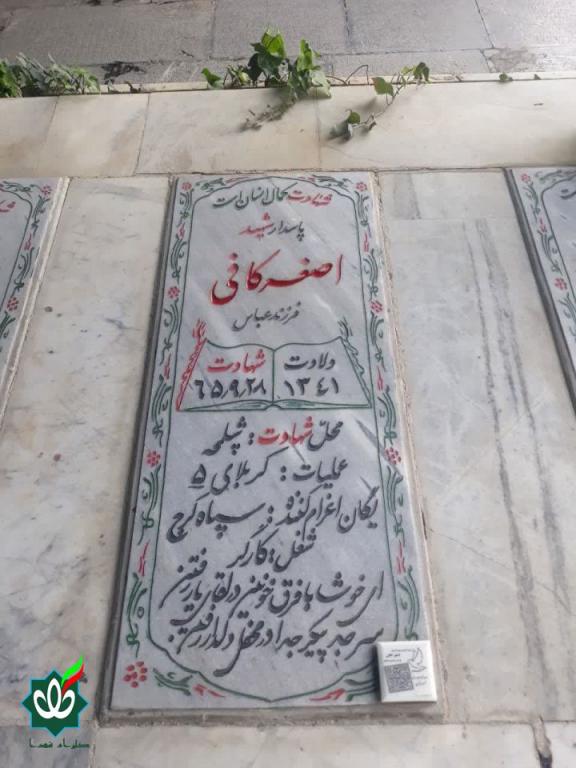 شهادت کمال انسان است
پاسدار شهید
اصغر کافی
فرزند عباس
ولادت
۱۳۴۱
شهادت
۶۵/۹/۲۸
محل شهادت: شلمچه
عملیات: کربلای ۵
یگان اعزام کننده: سپاه کرج
شغل: کارگر
ای خوشا با فرق خونین در لقای یار رفتن
سر جدا پیکر جدا در محفل دلدار رفتن
گلزار شهدا